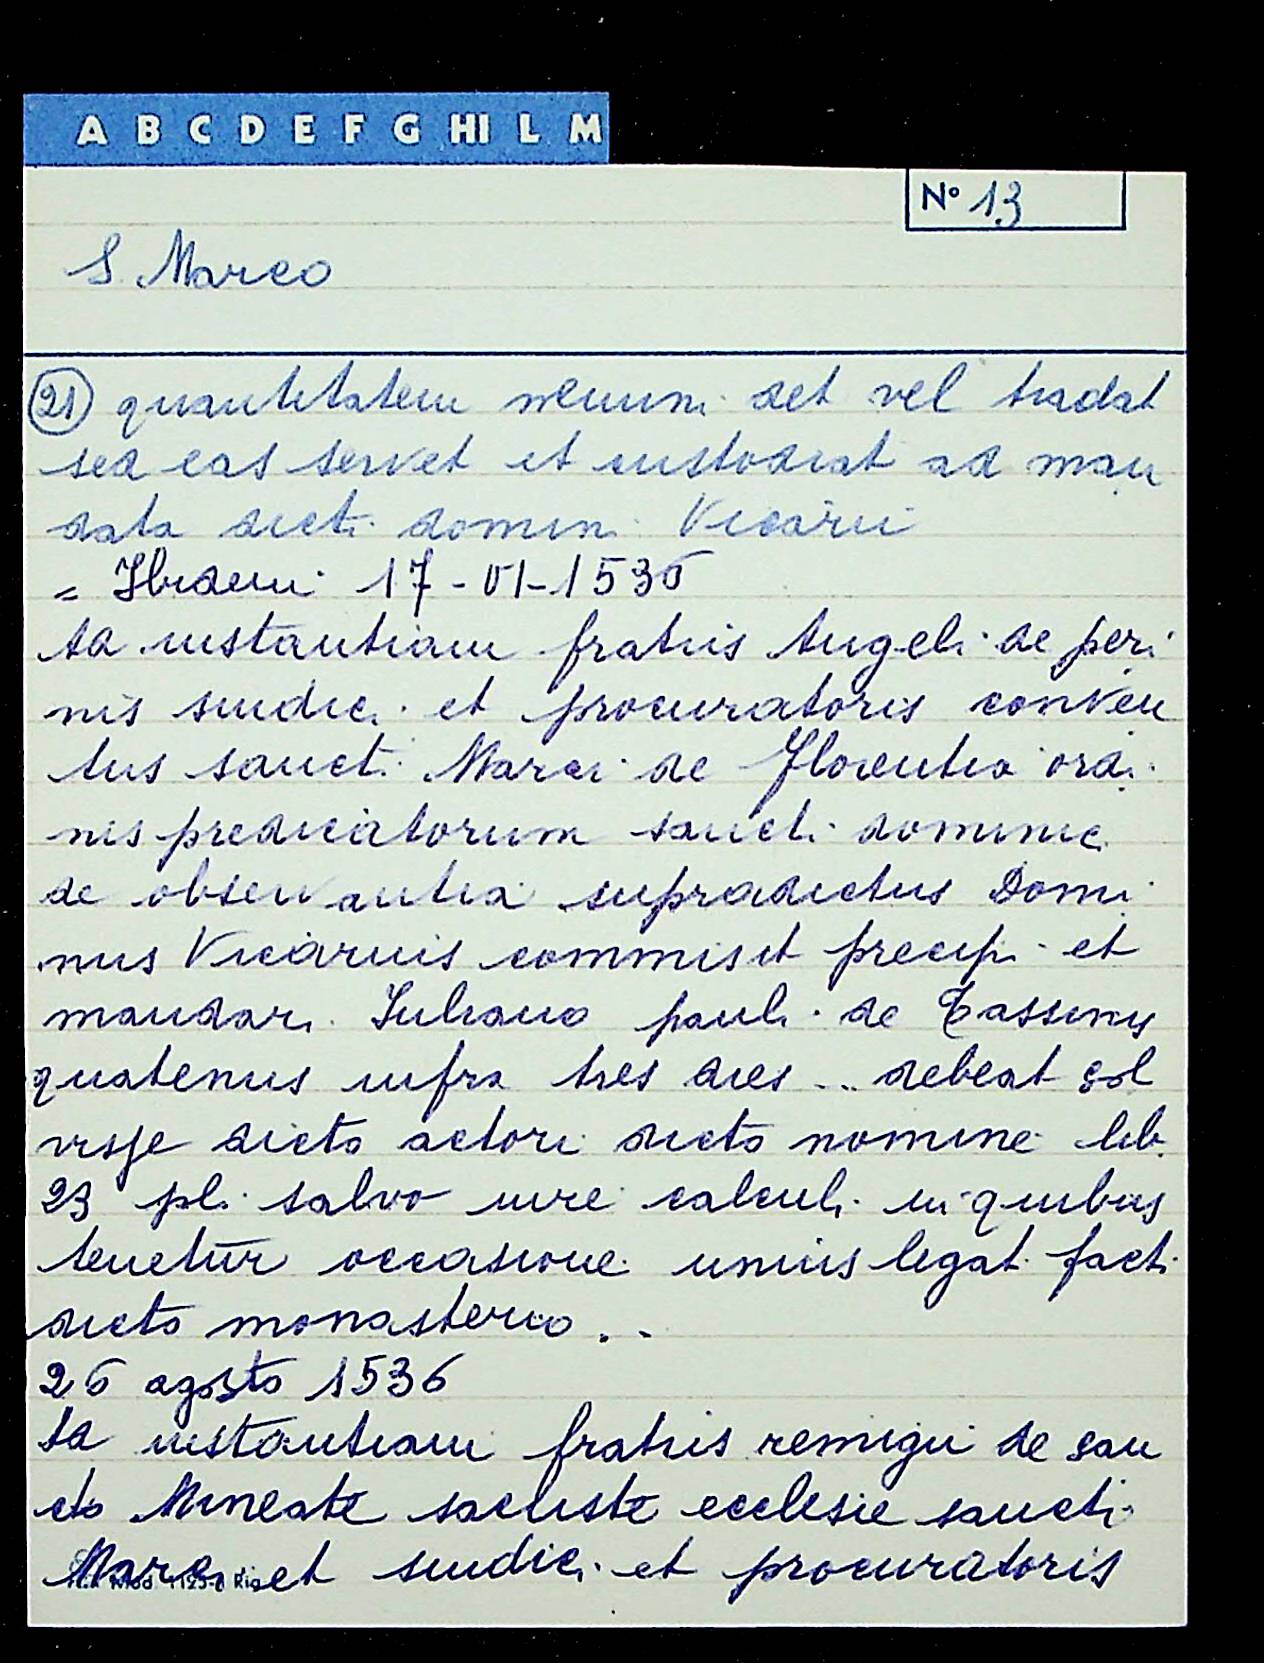 A B C D E F G HI L M
N° 13
S. Marco
(21) quantitatem nemini det vel tradat
sed eas servet et custodiat ad man
data dicti domini Vicarii
= Ibidem 17-VI-1536
Ad instantiam fratris Angeli de peri
nis sindici et procuratoris conven
tus sancti Marci de Florentia ordi
nis predicatorum sancti dominici
de observantia supradictus Domi
nus Vicarius commisit precipi et
mandari Iuliano pauli de Tassinis
quatenus infra tres dies ... debeat sol
visse dicto actori dicto nomine lib.
23 pli. salvo iure calculi in quibus
tenetur occasione unius legati facti
dicto monasterio ..
26 agosto 1536
Ad instantiam fratris remigii de san
cto Mineate sacriste ecclesie sancti
Marci et sindici et procuratoris
Mod. 1125-